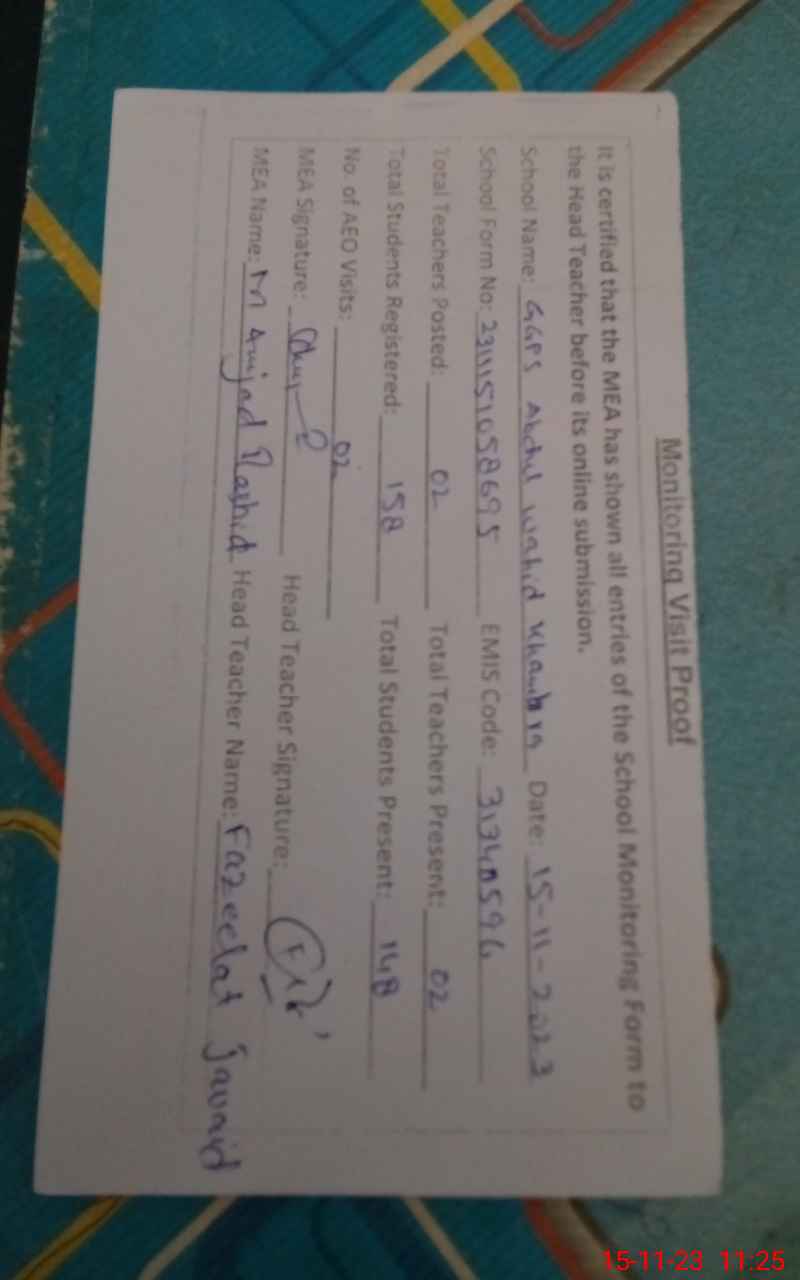 Monitoring Visit Proof
It is certified that the MEA has shown all entries of the School Monitoring Form to
the Head Teacher before its online submission.
School Name: GGPS Abdul Wahid Khambra Date: 15-11-2023
School Form No: EMIS Code:
Total Teachers Posted: 02 Total Teachers Present: 02
Total Students Registered: 158 Total Students Present: 148
No. of AEO Visits: 02
MEA Signature: Head Teacher Signature:
MEA Name: M Amjad Rashid Head Teacher Name: Fazeelat Javaid
15-11-23 11:25